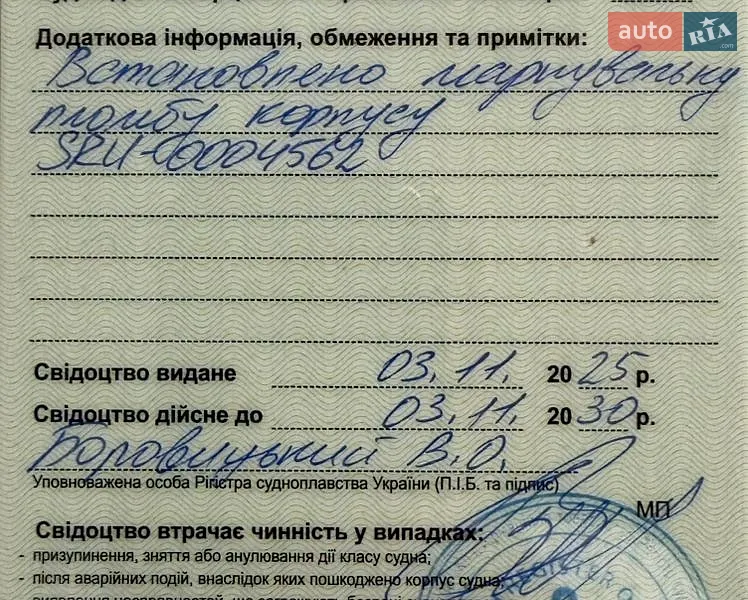 auto RIA.com
Додаткова інформація, обмеження та примітки:
Встановлено маркувальну
пломбу корпусу
SRU-0004562
Свідоцтво видане 03.11. 2025 р.
Свідоцтво дійсне до 03.11. 2030 р.
Боровицький В.О.
Уповноважена особа Регістра судноплавства України (П.І.Б. та підпис)
МП
Свідоцтво втрачає чинність у випадках:
- призупинення, зняття або анулювання дії класу судна;
- після аварійних подій, внаслідок яких пошкоджено корпус судна;
REGISTER O